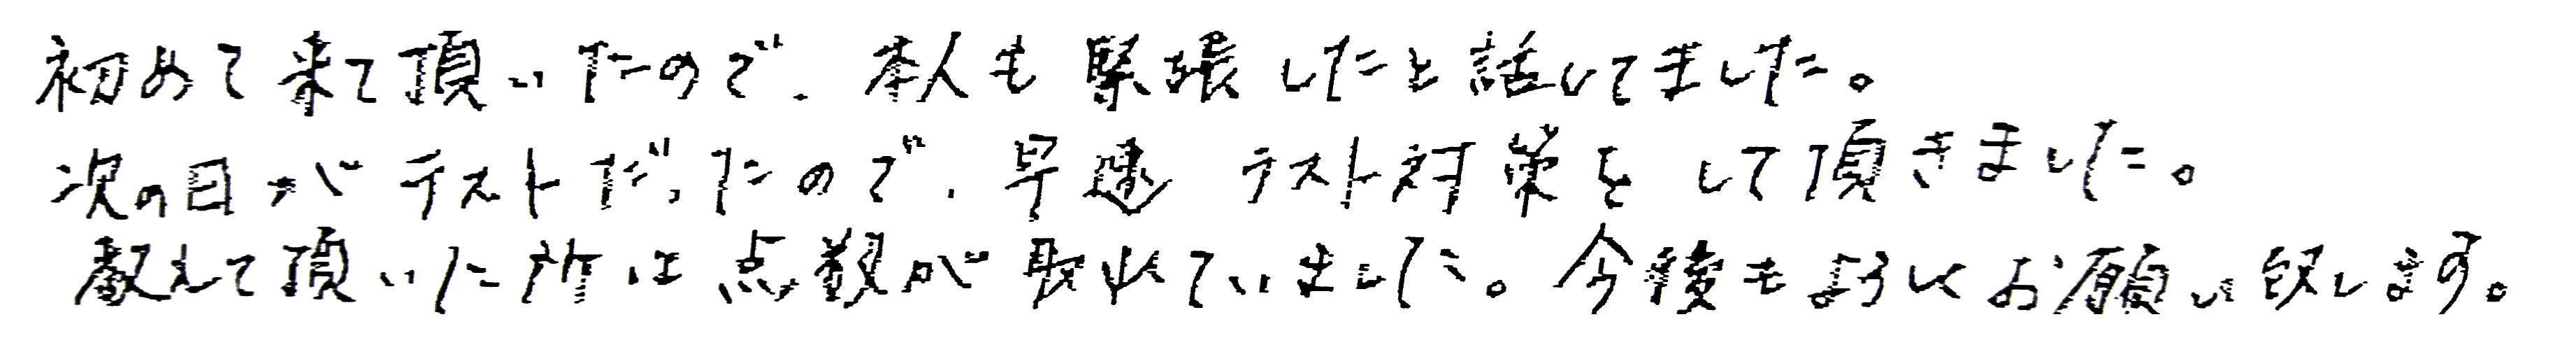 初めて来て頂いたので、本人も緊張したと話してました。
次の日がテストだったので、早速テスト対策をして頂きました。
教えて頂いた所は点数が取れていました。今後もよろしくお願い致します。